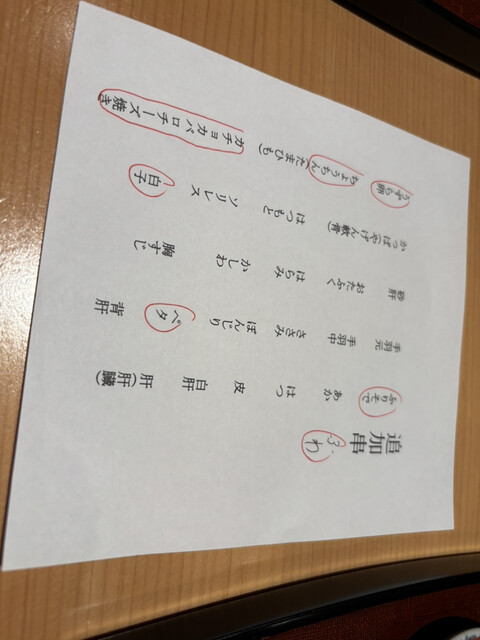 追加串 ふわ
ふりそで あか はつ 皮 白肝 肝(肝臓)
手羽元 手羽中 ささみ ぼんじり ペタ 背肝
砂肝 おたふく はらみ かしわ 胸すじ
かっぱ(やげん軟骨) はつもと ソリレス 白子
うずら卵 ちょうちん(たまひも) カチョカバロチーズ焼き